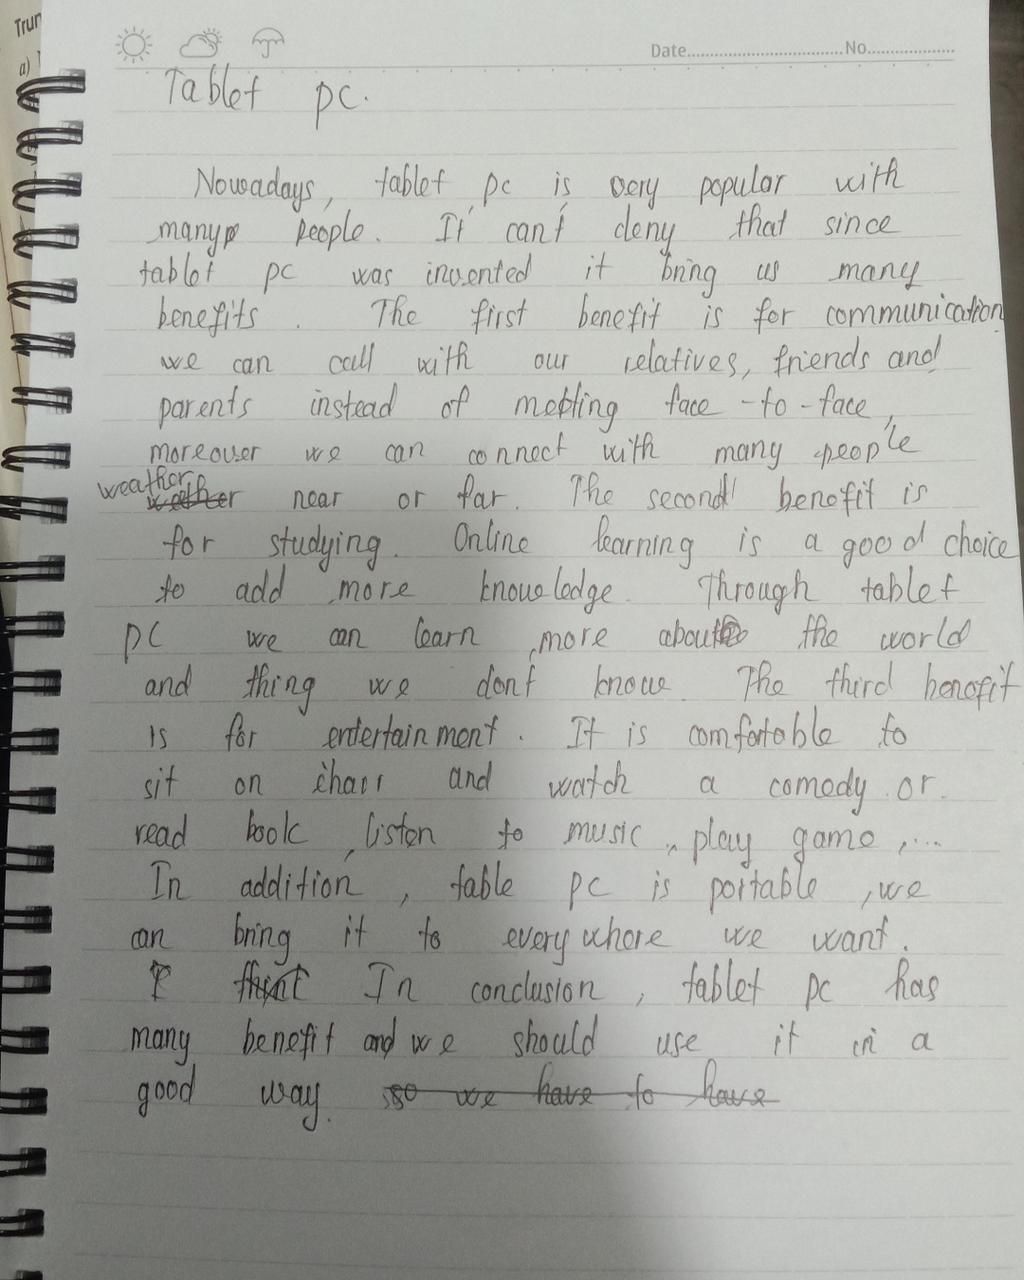 Trun
a)
Date..............................No..................
Tablet pc.
Nowadays, tablet pc is very popular with
many people. It can't deny that since
tablet pc was invented it bring us many
benefits. The first benefit is for communication
we can call with our relatives, friends and
parents instead of meeting face-to-face,
moreover we can connect with many people
weather near or far. The second benefit is
for studying. Online learning is a good choice
to add more knowledge. Through tablet
pc we can learn more about the world
and thing we don't know. The third benefit
is for entertainment. It is comfortable to
sit on chair and watch a comedy or
read book, listen to music, play game,...
In addition, table pc is portable, we
can bring it to everywhere we want.
I think In conclusion, tablet pc has
many benefit and we should use it in a
good way. so we have to have